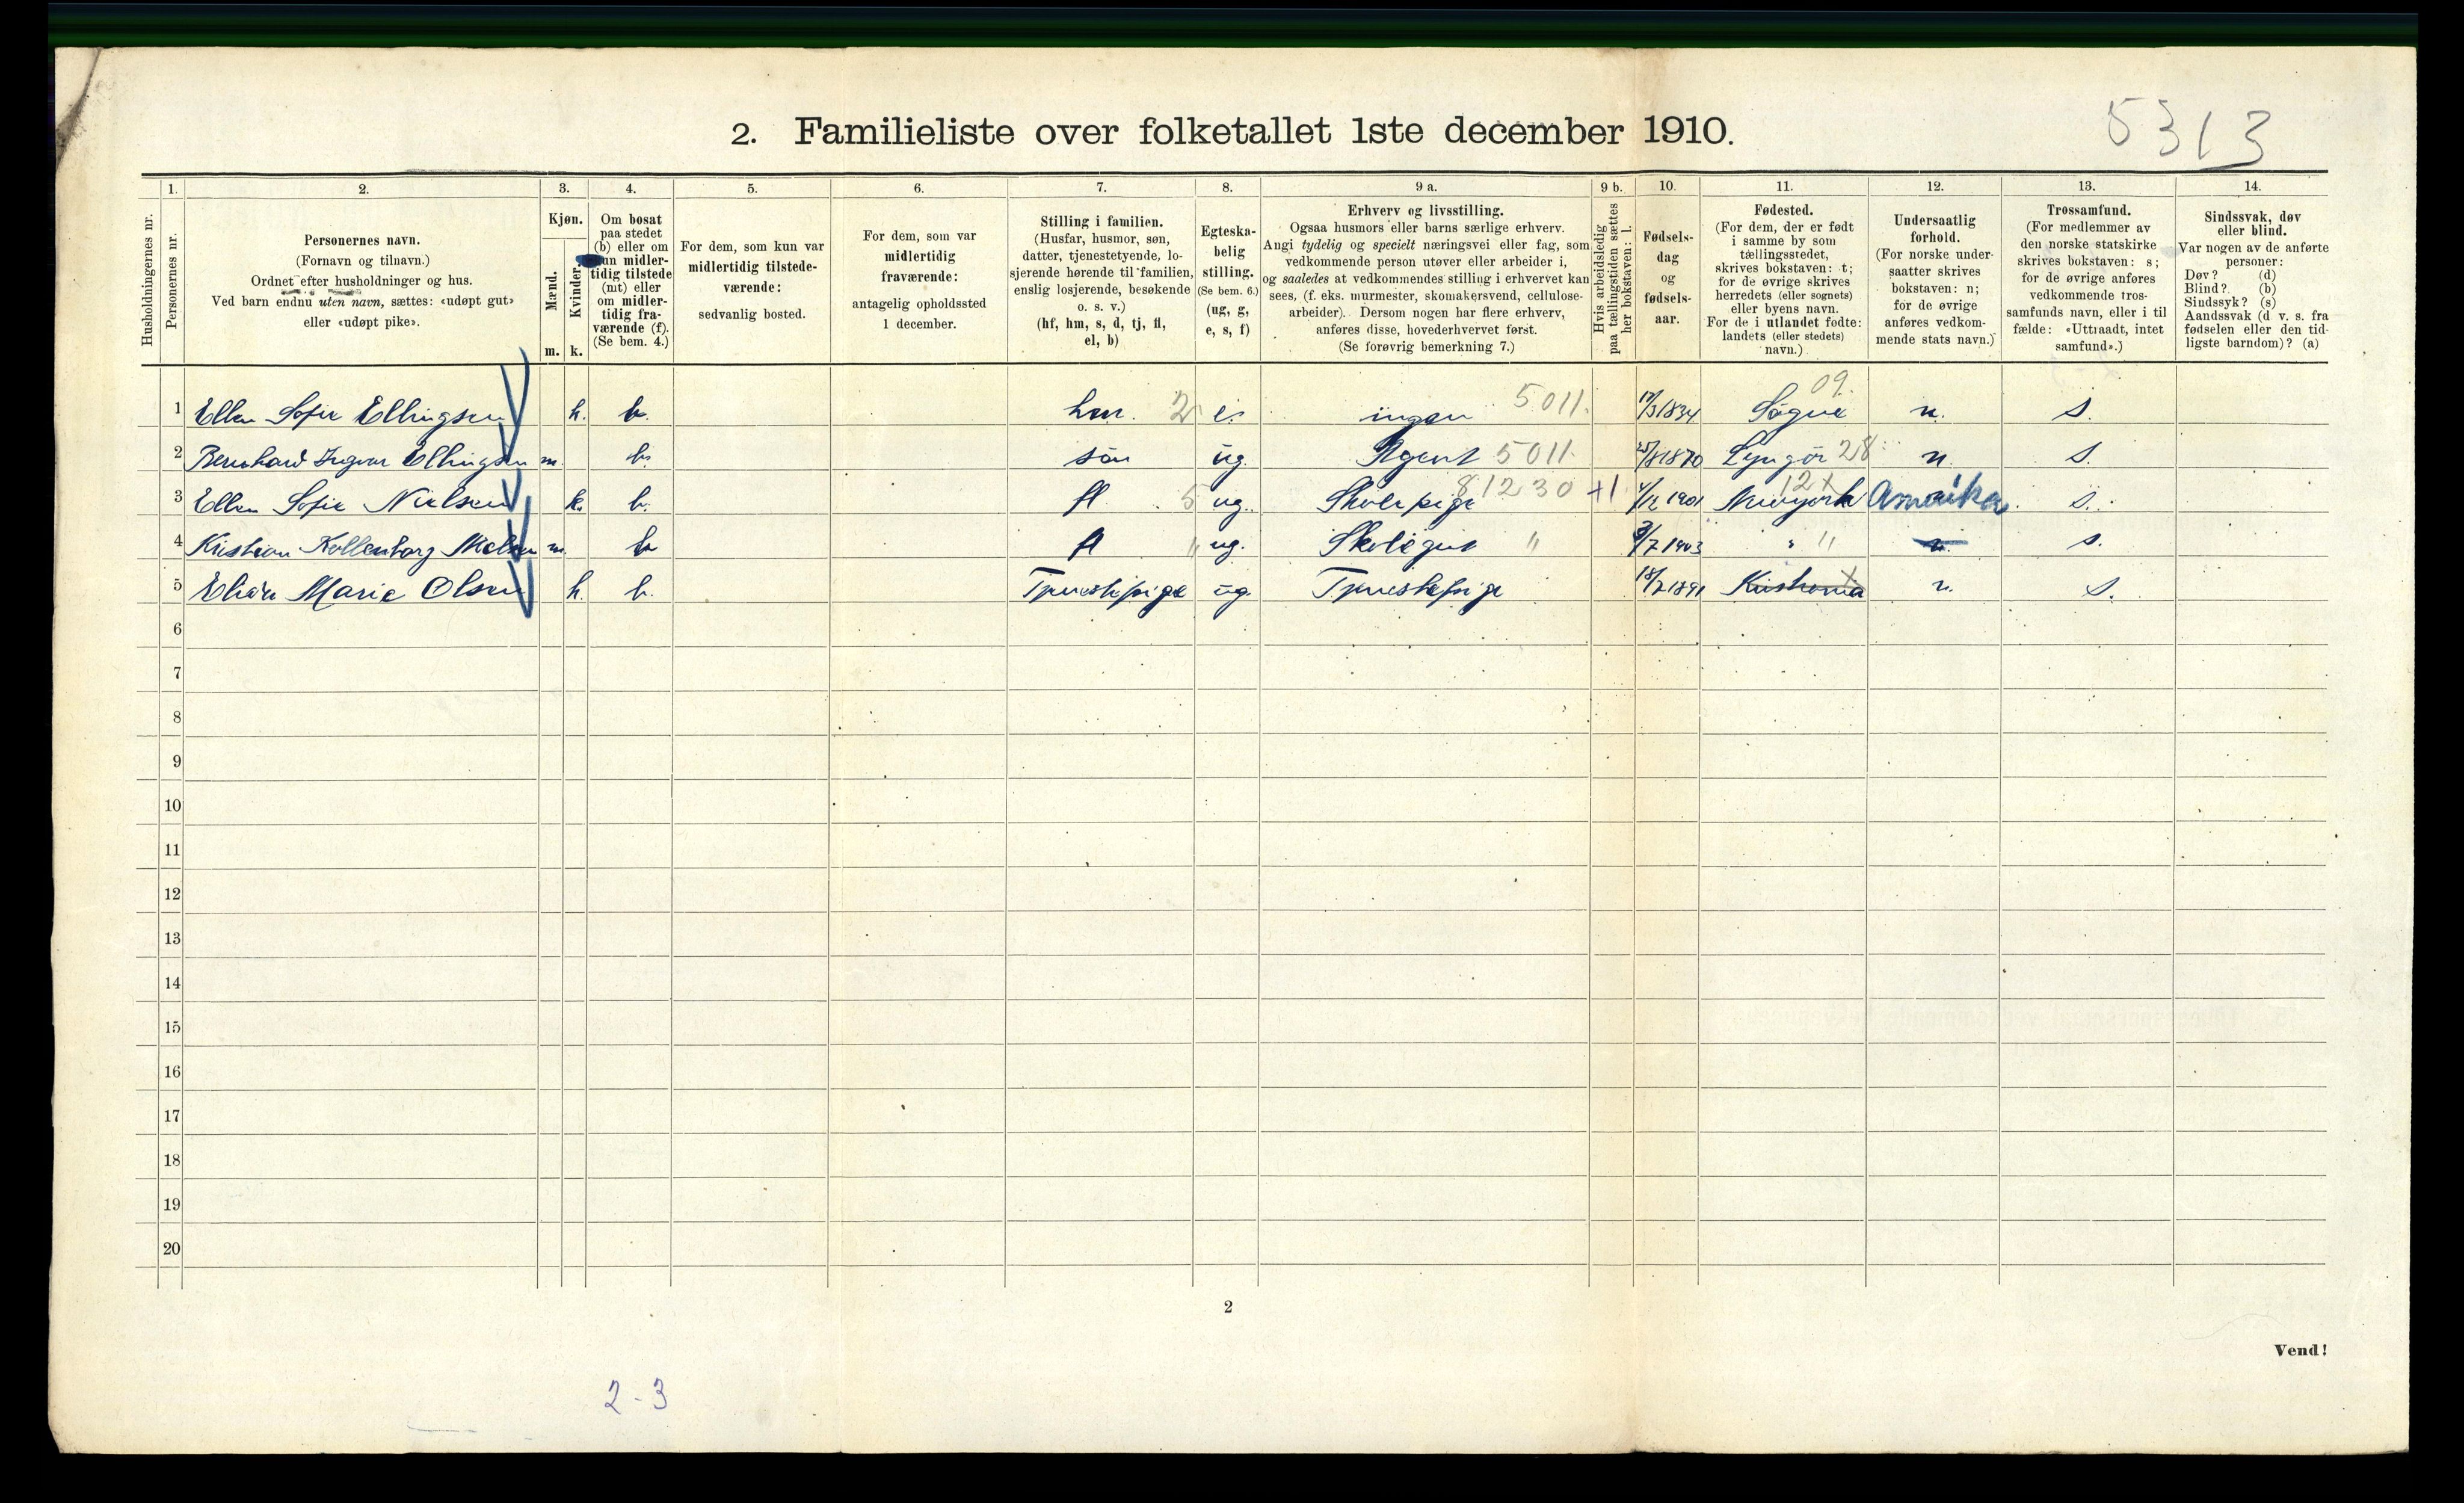 5313
2. Familieliste over folketallet 1ste december 1910.
1. 2. 3. 4. 5. 6. 7. 8. 9 a. 9 b. 10. 11. 12. 13. 14.
Husholdningernes nr.
Personernes nr.
Personernes navn.
(Fornavn og tilnavn.)
Ordnet efter husholdninger og hus.
Ved barn endnu uten navn, sættes: «udøpt gut»
eller «udøpt pike».
Kjøn.
Mænd.
Kvinder.
m. k.
Om bosat
paa stedet
(b) eller om
kun midler-
tidig tilstede
(mt) eller
om midler-
tidig fra-
værende (f).
(Se bem. 4.)
For dem, som kun var
midlertidig tilstede-
værende:
sedvanlig bosted.
For dem, som var
midlertidig
fraværende:
antagelig opholdssted
1 december.
Stilling i familien.
(Husfar, husmor, søn,
datter, tjenestetyende, lo-
sjerende hørende til familien,
enslig losjerende, besøkende
o. s. v.)
(hf, hm, s, d, tj, fl,
el, b)
Egteska-
belig
stilling.
(Se bem. 6.)
(ug, g,
e, s, f)
Erhverv og livsstilling.
Ogsaa husmors eller barns særlige erhverv.
Angi tydelig og specielt næringsvei eller fag, som
vedkommende person utøver eller arbeider i,
og saaledes at vedkommendes stilling i erhvervet kan
sees, (f. eks. murmester, skomakersvend, cellulose-
arbeider). Dersom nogen har flere erhverv,
anføres disse, hovederhvervet først.
(Se forøvrig bemerkning 7.)
Hvis arbeidsledig
paa tællingstiden sættes
her bokstaven: l.
Fødsels-
dag
og
fødsels-
aar.
Fødested.
(For dem, der er født
i samme by som
tællingsstedet,
skrives bokstaven: t;
for de øvrige skrives
herredets (eller sognets)
eller byens navn.
For de i utlandet fødte:
landets (eller stedets)
navn.)
Undersaatlig
forhold.
(For norske under-
saatter skrives
bokstaven: n;
for de øvrige
anføres vedkom-
mende stats navn.)
Trossamfund.
(For medlemmer av
den norske statskirke
skrives bokstaven: s;
for de øvrige anføres
vedkommende tros-
samfunds navn, eller i til
fælde: «Uttraadt, intet
samfund».)
Sindssvak, døv
eller blind.
Var nogen av de anførte
personer:
Døv? (d)
Blind? (b)
Sindssyk? (s)
Aandssvak (d v. s. fra
fødselen eller den tid-
ligste barndom)? (a)
1 Ellen Sofie Ellingsen k. b. hm. 2 e. ingen 5011. 17/3 1834 Søgne 09. n. s.
2 Bernhard Ingvar Ellingsen m. b. søn ug. Agent 5011. 25/8 1870 Lyngør 28 n. s.
3 Ellen Sofie Nielsen k. b. fl 5 ug. Skolepige 81230 +1 1901 Newyork 12 x Amerika s.
4 Kristian Kollenborg Nielsen m. b fl " ug. Skolegut " 3/7 1903 " " n. s.
5 Marie Olsen k. b. Tjenestepige ug. Tjenestepige 18/2 1891 Kristiania n. s.
6
7
8
9
10
11
12
13
14
15
16
17
18
19
20
2
Vend!
2-3